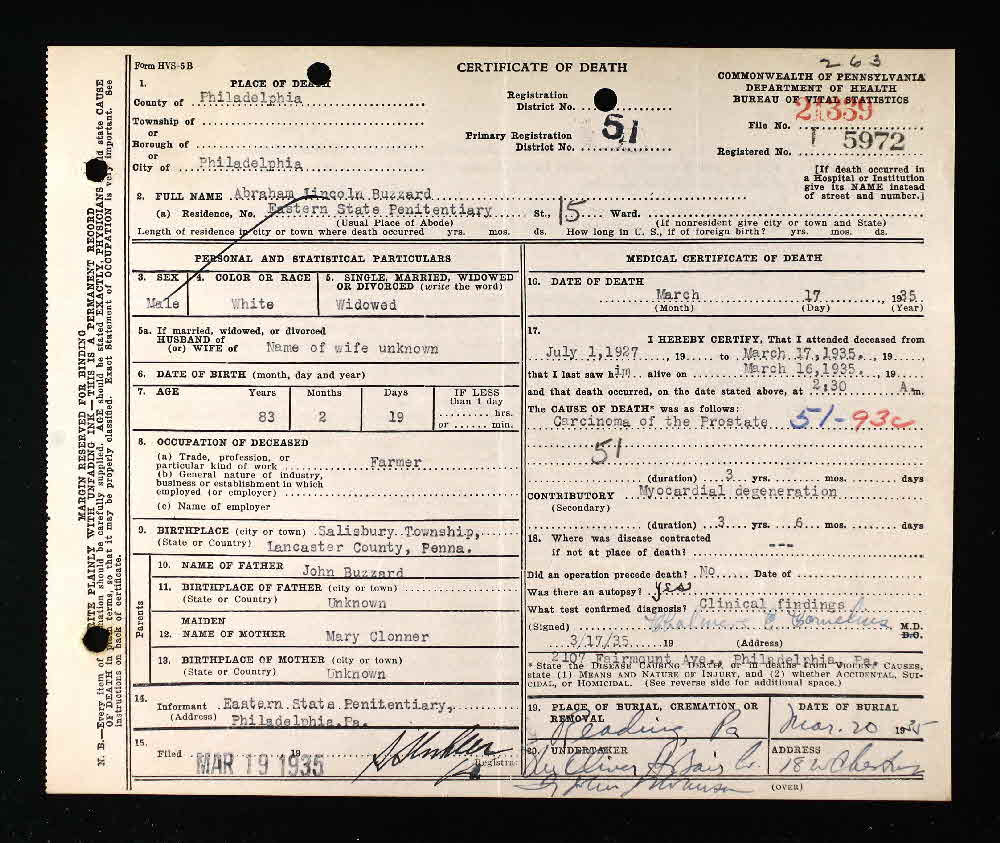 Form HVS-5B
CERTIFICATE OF DEATH
263
COMMONWEALTH OF PENNSYLVANIA
DEPARTMENT OF HEALTH
BUREAU OF VITAL STATISTICS
1. PLACE OF DEATH
County of Philadelphia
Township of
or
Borough of
or
City of Philadelphia
Registration
District No.
Primary Registration
District No. 51
File No. 21339
Registered No. 5972
[If death occurred in
a Hospital or Institution
give its NAME instead
of street and number.]
2. FULL NAME Abraham Lincoln Buzzard
(a) Residence, No. Eastern State Penitentiary St., 15 Ward.
(Usual Place of Abode) (If nonresident give city or town and State)
Length of residence in city or town where death occurred yrs. mos. ds. How long in U. S., if of foreign birth? yrs. mos. ds.
PERSONAL AND STATISTICAL PARTICULARS
3. SEX 4. COLOR OR RACE 5. SINGLE, MARRIED, WIDOWED
OR DIVORCED (write the word)
Male White Widowed
5a. If married, widowed, or divorced
HUSBAND of
(or) WIFE of Name of wife unknown
6. DATE OF BIRTH (month, day and year)
7. AGE Years Months Days IF LESS
than 1 day
hrs.
or min.
83 2 19
8. OCCUPATION OF DECEASED
(a) Trade, profession, or
particular kind of work Farmer
(b) General nature of industry,
business or establishment in which
employed (or employer)
(c) Name of employer
9. BIRTHPLACE (city or town) Salisbury Township,
(State or Country) Lancaster County, Penna.
Parents
10. NAME OF FATHER
John Buzzard
11. BIRTHPLACE OF FATHER (city or town)
(State or Country) Unknown
MAIDEN
12. NAME OF MOTHER Mary Clonner
13. BIRTHPLACE OF MOTHER (city or town)
(State or Country) Unknown
14.
Informant Eastern State Penitentiary,
(Address) Philadelphia, Pa.
15.
Filed MAR 19 1935 19
Registrar
MEDICAL CERTIFICATE OF DEATH
16. DATE OF DEATH
March 17, 1935
(Month) (Day) (Year)
17.
I HEREBY CERTIFY, That I attended deceased from
July 1,1927, 19 to March 17,1935., 19
that I last saw him alive on March 16,1935., 19
and that death occurred, on the date stated above, at 2:30 A.m.
The CAUSE OF DEATH* was as follows:
Carcinoma of the Prostate 51-93c
51
(duration) 3 yrs. mos. days
CONTRIBUTORY Myocardial degeneration
(Secondary)
(duration) 3 yrs. 6 mos. days
18. Where was disease contracted
if not at place of death? ---
Did an operation precede death? No Date of
Was there an autopsy? yes
What test confirmed diagnosis? Clinical findings
(Signed) Chalmers E. Cornelius M.D.
D.O.
3/17/35 19 (Address)
2107 Fairmount Ave., Philadelphia, Pa.
* State the DISEASE CAUSING DEATH, or in deaths from VIOLENT CAUSES,
state (1) MEANS AND NATURE OF INJURY, and (2) whether ACCIDENTAL, SUI-
CIDAL, or HOMICIDAL. (See reverse side for additional space.)
19. PLACE OF BURIAL, CREMATION OR
REMOVAL
Reading Pa
DATE OF BURIAL
Mar. 20 1935
20. UNDERTAKER
Oliver H. Bair Co.
ADDRESS
(OVER)
MARGIN RESERVED FOR BINDING
WRITE PLAINLY WITH UNFADING INK—THIS IS A PERMANENT RECORD
N. B.—Every item of information should be carefully supplied. AGE should be stated EXACTLY. PHYSICIANS should state CAUSE
OF DEATH in plain terms, so that it may be properly classified. Exact Statement of OCCUPATION is very important. See
instructions on back of certificate.